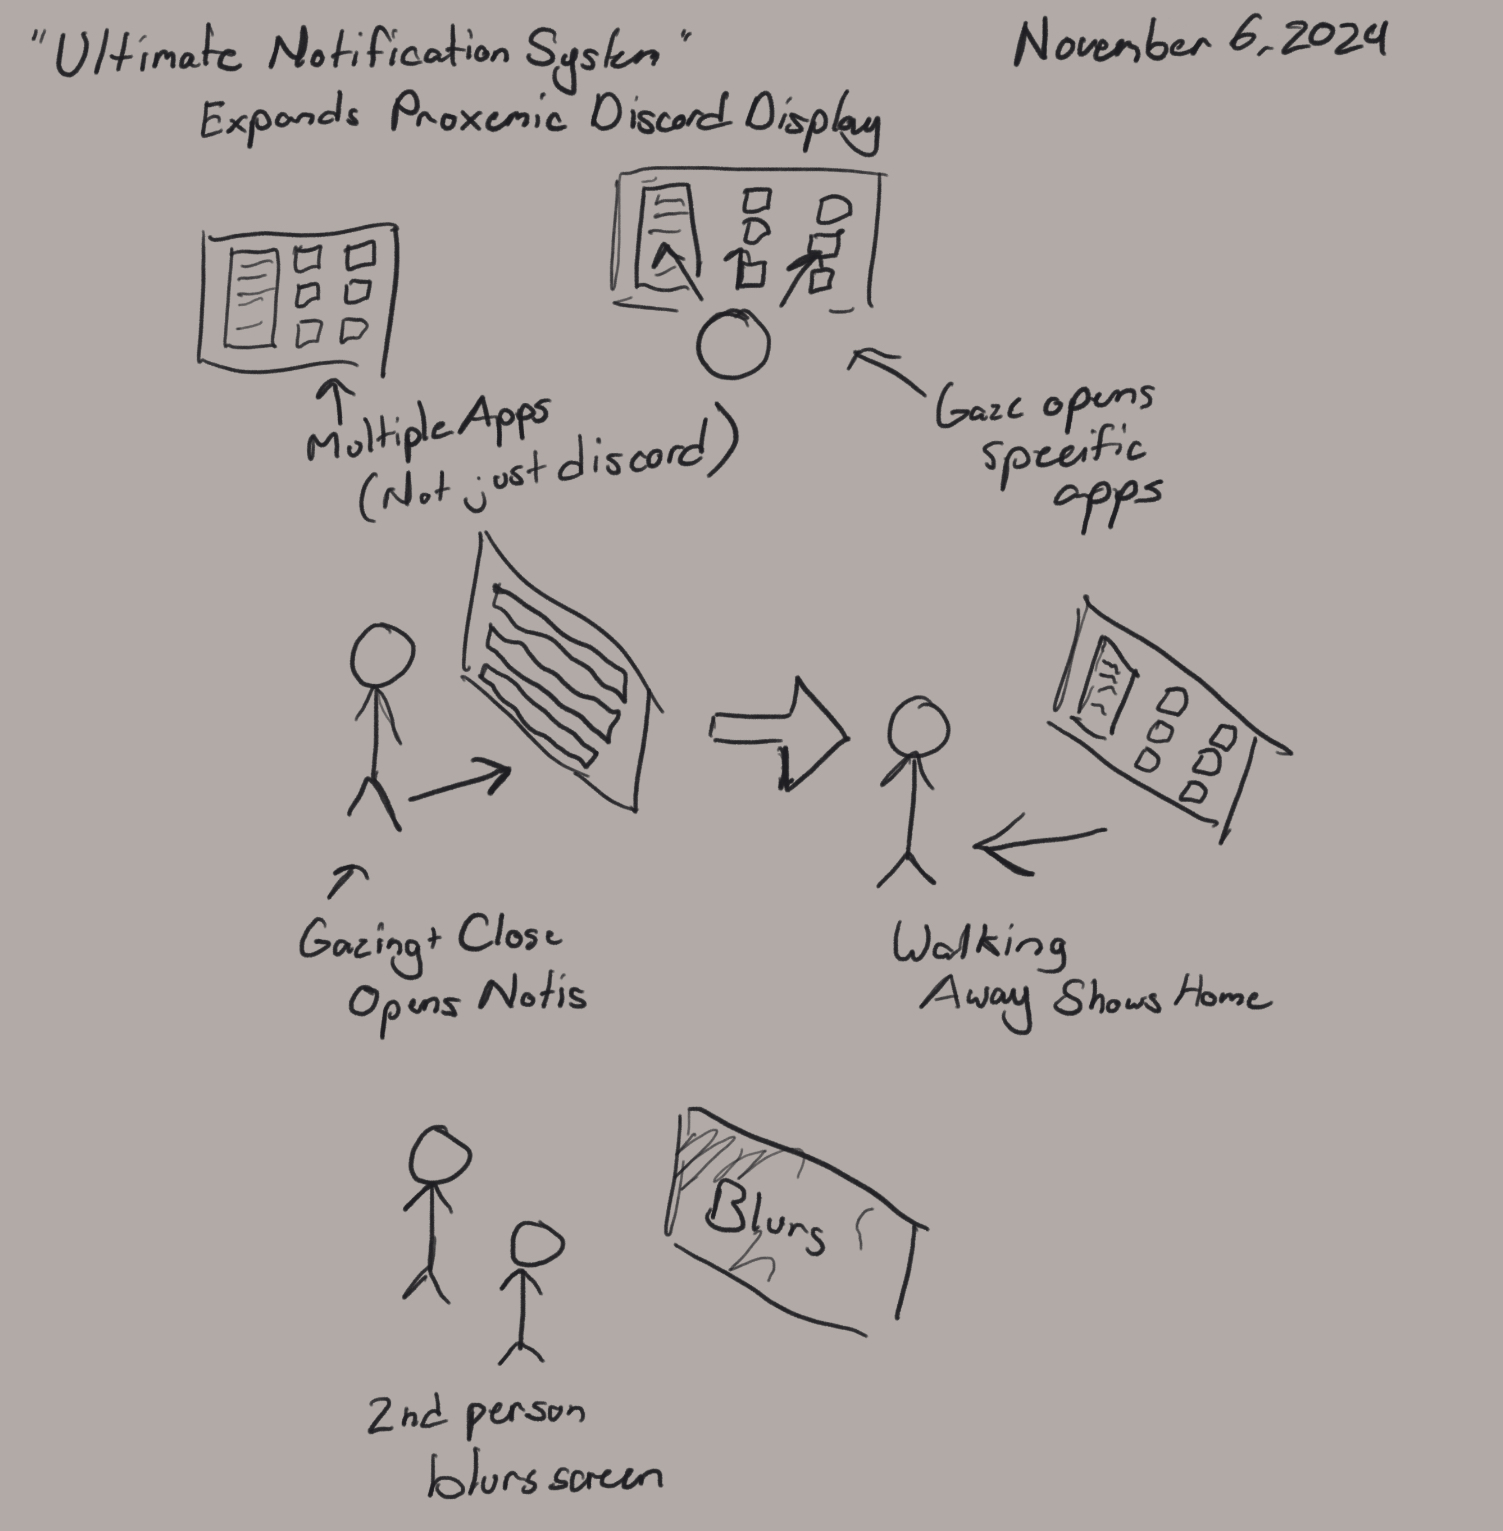 "Ultimate Notification System"
November 6, 2024
Expands Proxemic Discord Display
Multiple Apps
(Not just discord)
Gaze opens
specific
apps
Gazing + Close
Opens Notis
Walking
Away Shows Home
Blurs
2nd person
blurs screen